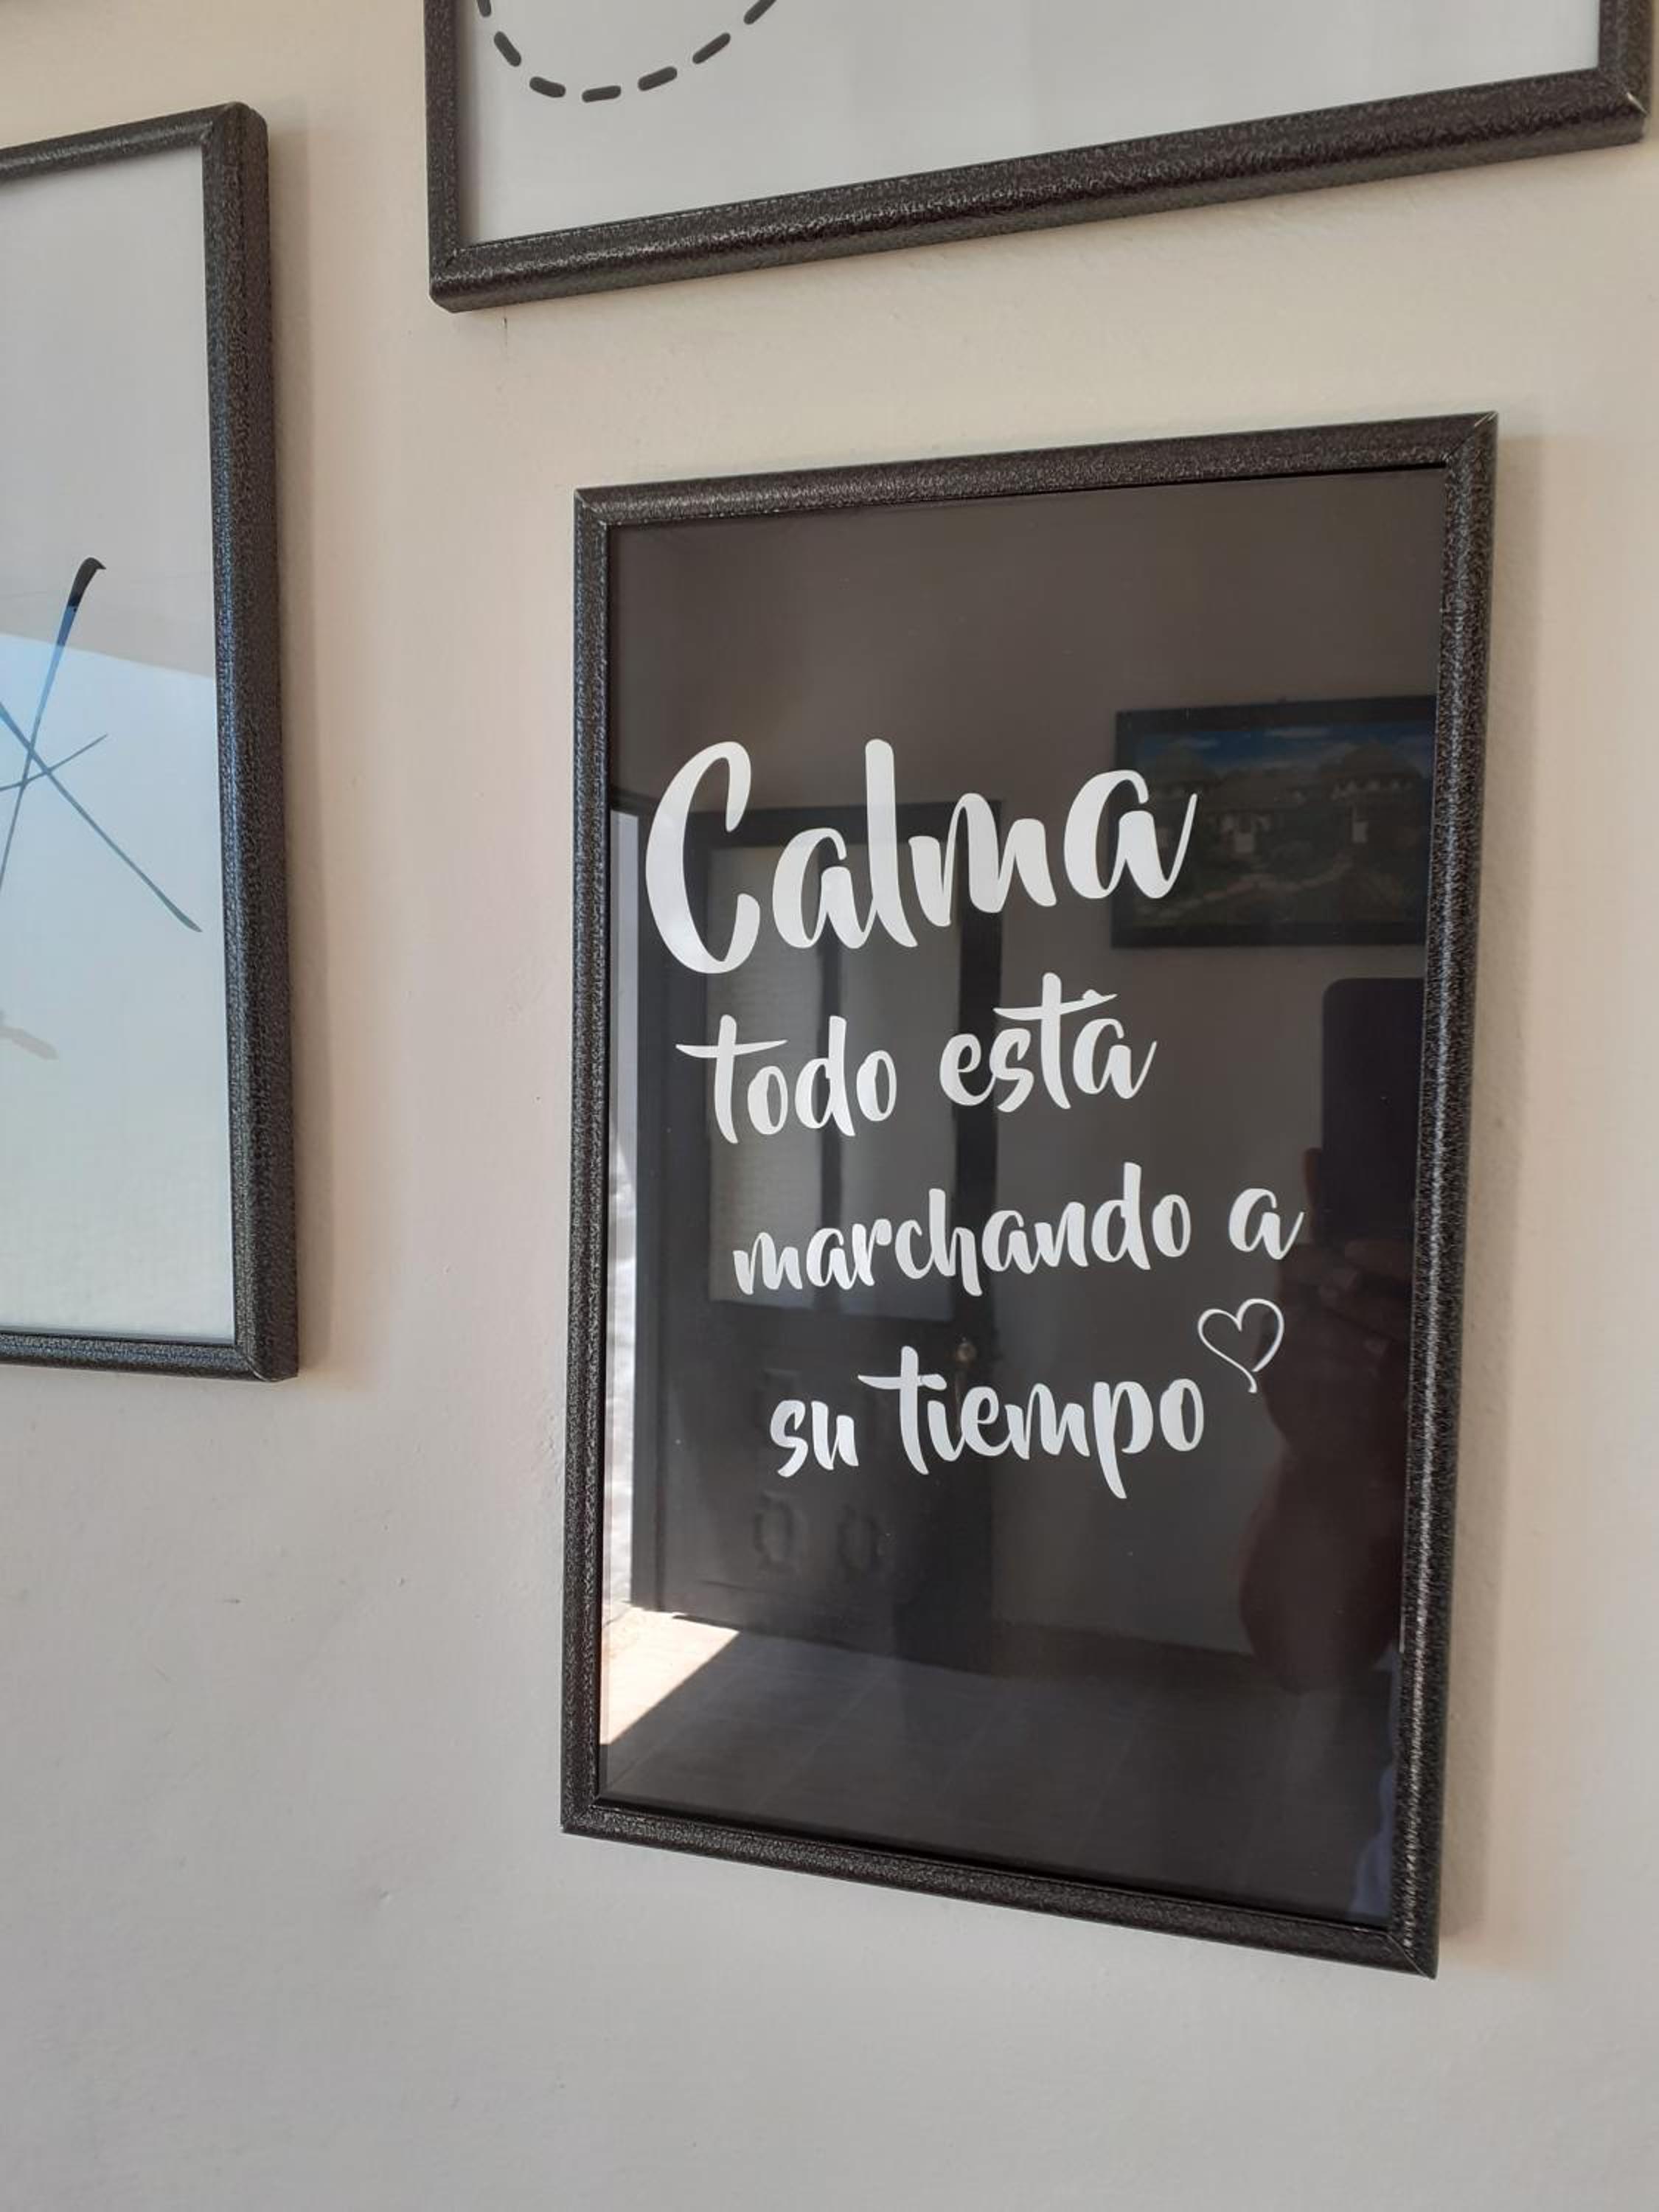 Calma
todo està
marchando a
su tiempo